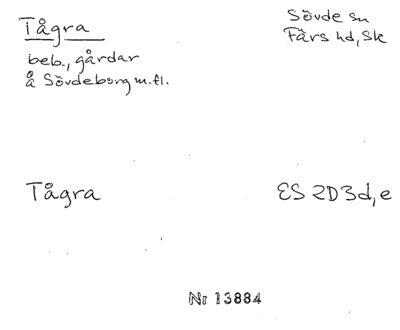 Tågra
Sövde sn
Färs hd, Sk
beb., gårdar
å Sövdeborg m.fl.
Tågra
ES 2D3d,e
Nr 13884